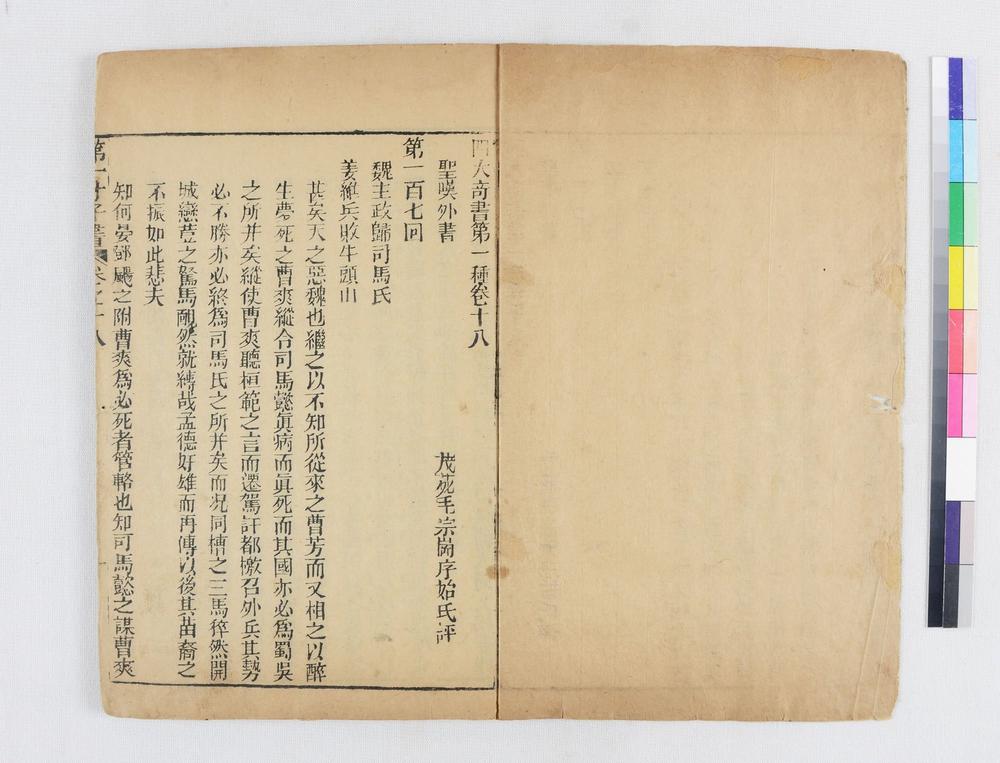 四大奇書第一種卷十八
聖嘆外書
茂苑毛宗崗序始氏評
第一百七回
魏主政歸司馬氏
姜維兵敗牛頭山
甚矣天之惡魏也繼之以不知所從來之曹芳而又相之以醉
生夢死之曹爽縱令司馬懿眞病而眞死而其國亦必爲蜀吳
之所并矣縱使曹爽聽桓範之言而遷駕許都檄召外兵其勢
必不勝亦必終爲司馬氏之所并矣而况同槽之三馬猝然開
城戀荳之駑馬靦然就縛哉孟德奸雄而再傳以後其苗裔之
不振如此悲夫
知何晏鄧颺之附曹爽爲必死者管輅也知司馬懿之謀曹爽
第一才子書
卷之十八
一